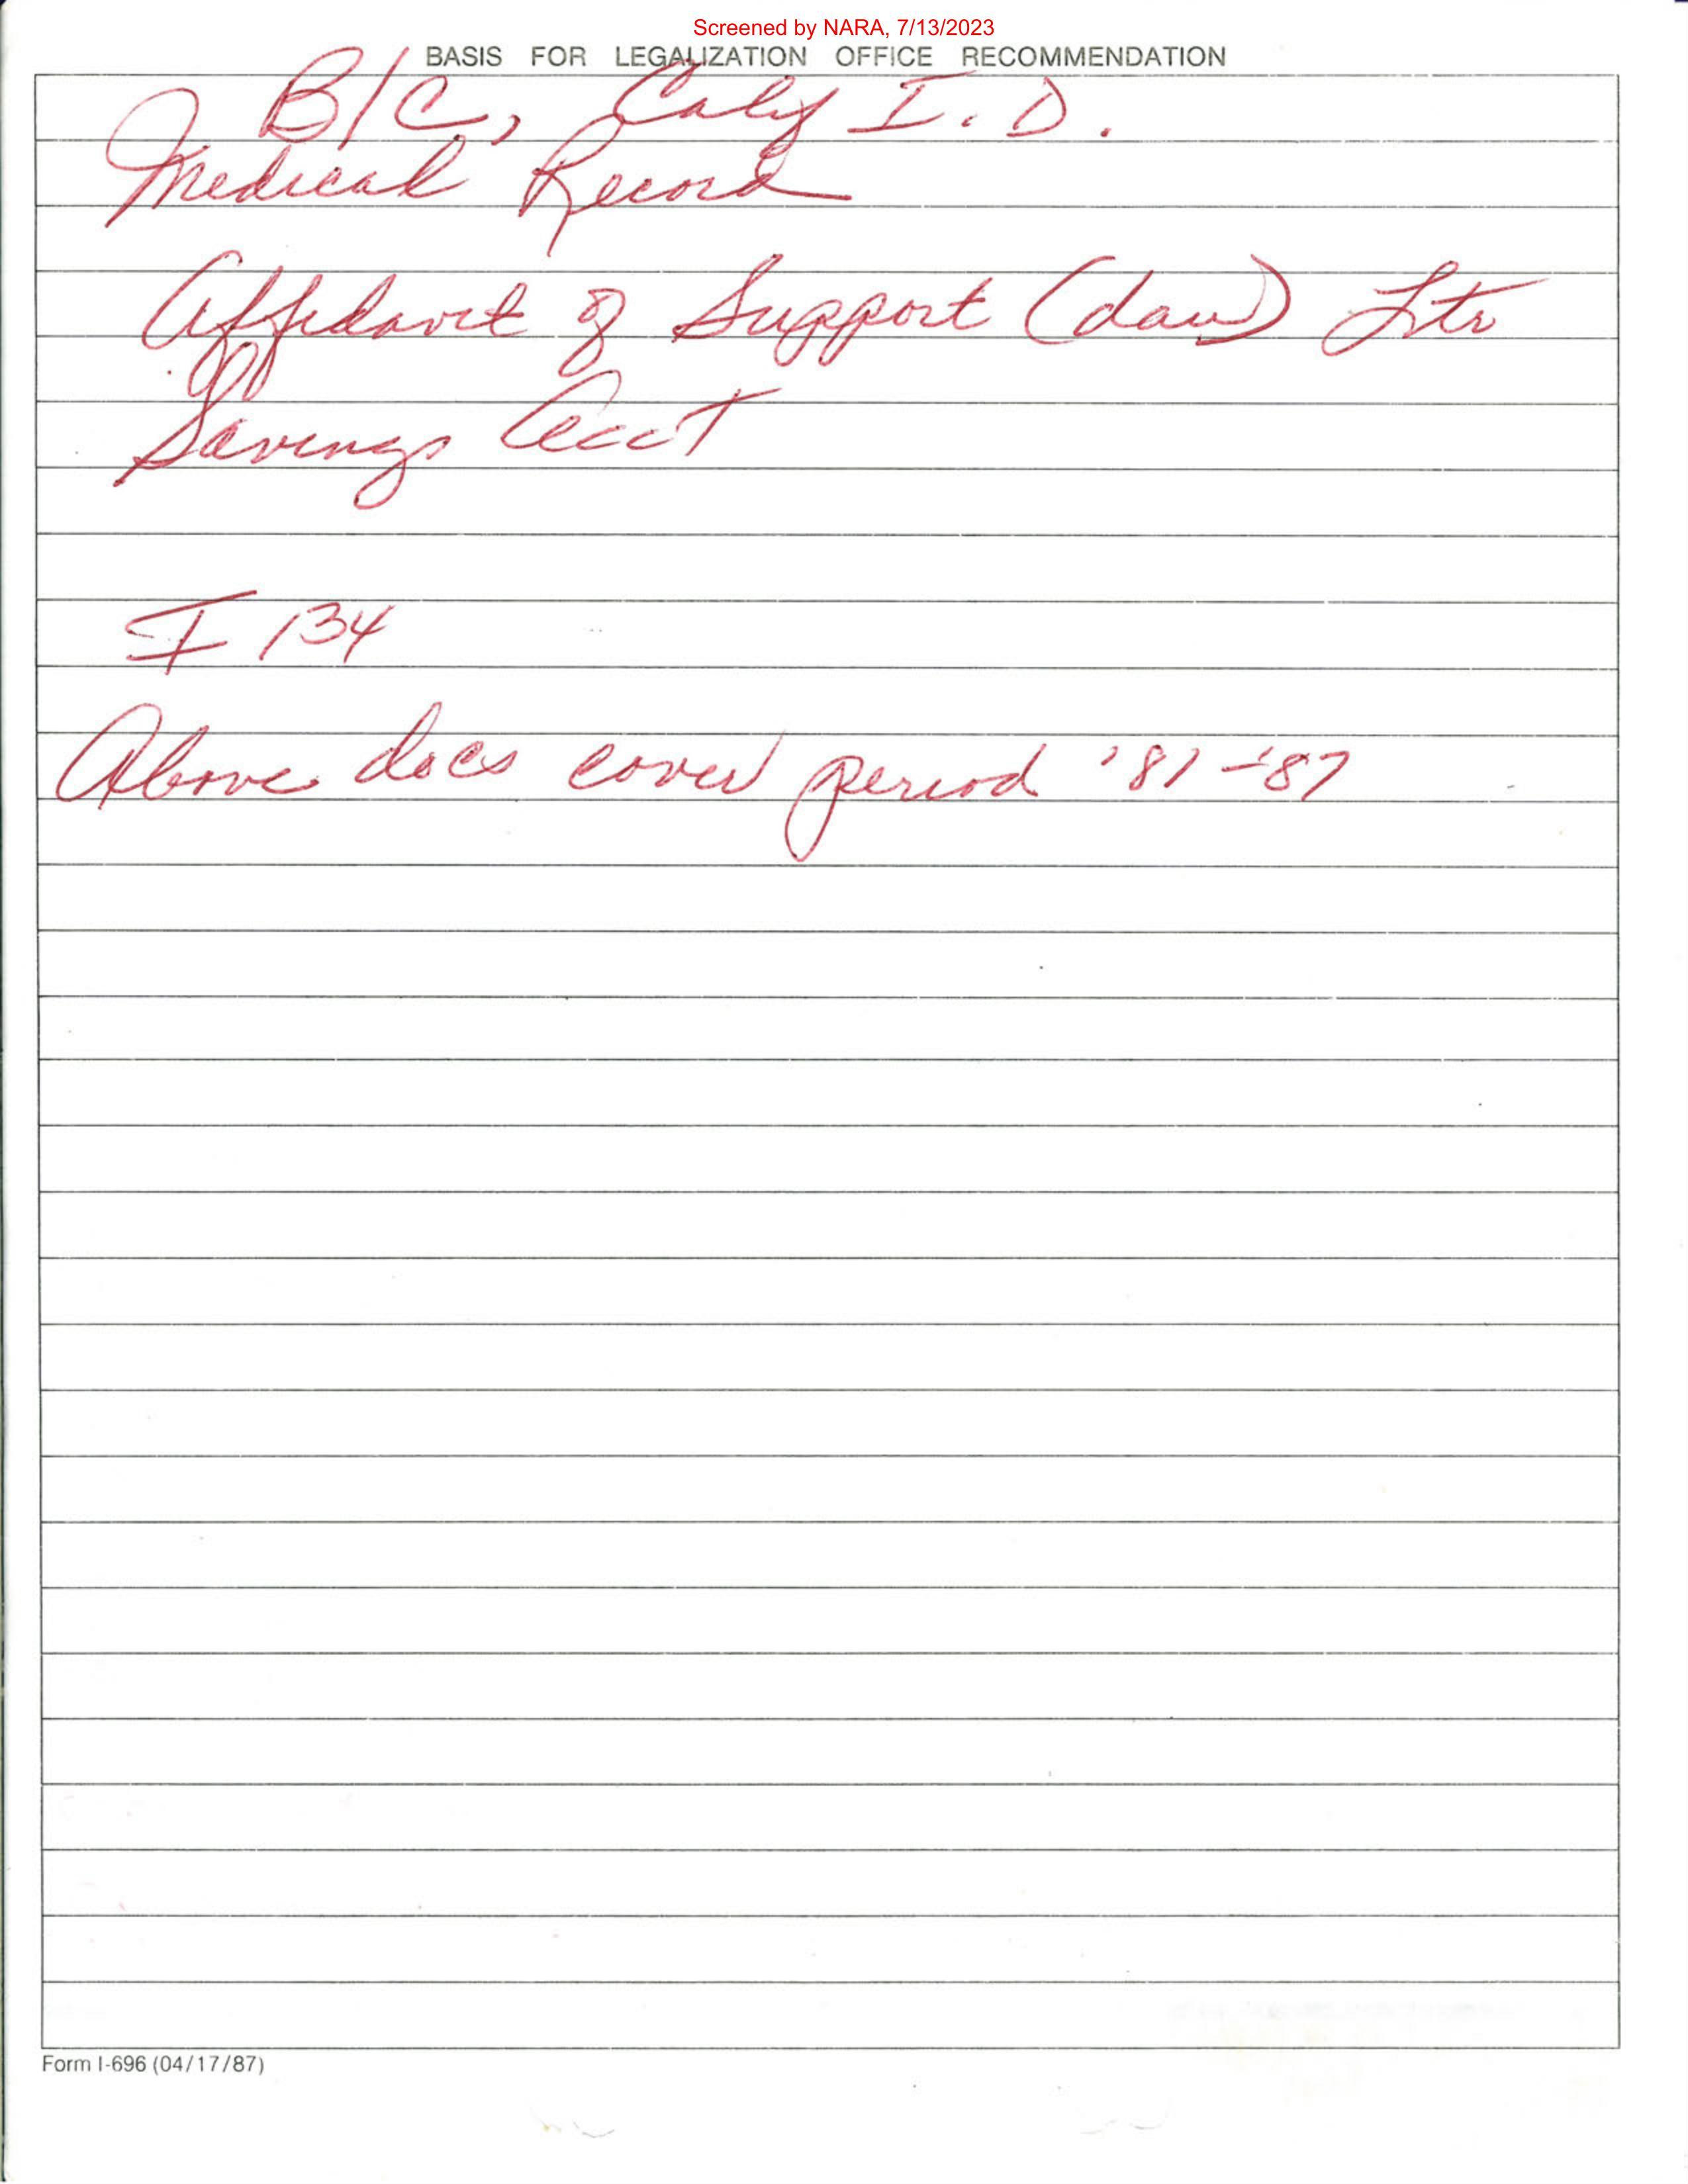 Screened by NARA, 7/13/2023
BASIS FOR LEGALIZATION OFFICE RECOMMENDATION
B/C, Calif I.D.
Medical Record
Affidavit of Support (dau) Ltr
Savings Acct
I 134
Above docs cover period '81-'87
Form I-696 (04/17/87)